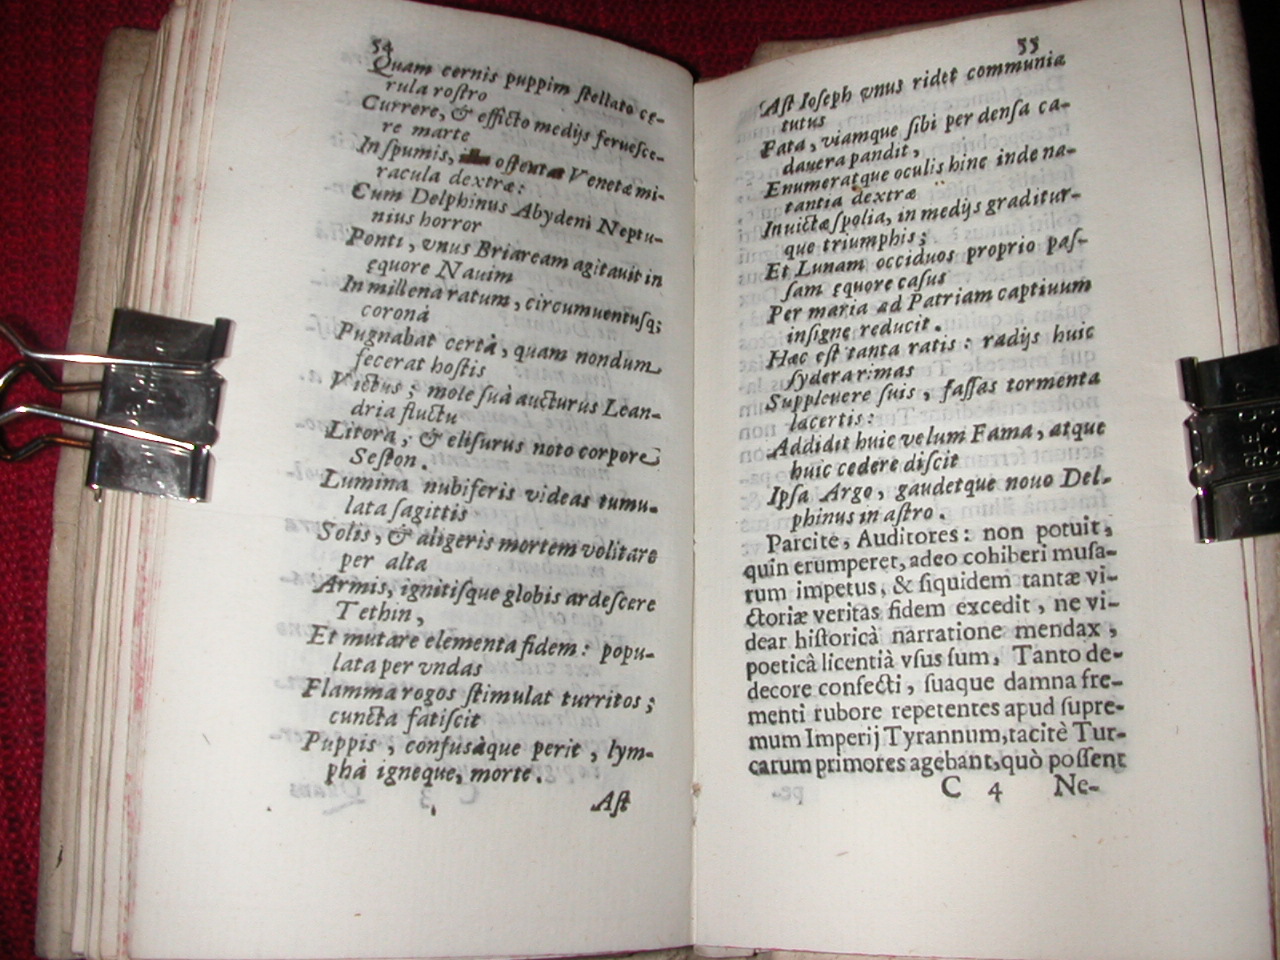 54
Quam cernis puppim ſtellato cę-
rula roſtro
Currere, & efficto medijs ferueſce-
re marte
In ſpumis, oſtentat Venetæ mi-
racula dextræ:
Cum Delphinus Abydeni Neptu-
nius horror
Ponti, vnus Briaream agitauit in
ęquore Nauim
In millena ratum, circumuentuſq;
coronà
Pugnabat certà, quam nondum
fecerat hoſtis
Victus; mole ſuà aucturus Lean-
dria fluctu
Litora, & eliſurus noto corpore
Seſton.
Lumina nubiferis videas tumu-
lata ſagittis
Solis, & aligeris mortem volitare
per alta
Armis, ignitiſque globis ardeſcere
Tethin,
Et mutare elementa fidem: popu-
lata per vndas
Flamma rogos ſtimulat turritos;
cuncta fatiſcit
Puppis, confusàque perit, lym-
phà igneque, morte.
Aſt
55
Aſt Ioſeph vnus ridet communia
tutus
Fata, viamque ſibi per denſa ca-
dauera pandit,
Enumeratque oculis hinc inde na-
tantia dextræ
Inuictæ ſpolia, in medijs graditur-
que triumphis;
Et Lunam occiduos proprio paſ-
ſam ęquore caſus
Per maria ad Patriam captiuum
inſigne reducit.
Hæc eſt tanta ratis: radijs huic
ſydera rimas
Suppleuere ſuis, faſſas tormenta
lacertis:
Addidit huic velum Fama, atque
huic cedere diſcit
Ipſa Argo, gaudetque nouo Del-
phinus in aſtro.
Parcite, Auditores: non potuit,
quin erumperet, adeo cohiberi muſa-
rum impetus, & ſiquidem tantæ vi-
ctoriæ veritas fidem excedit, ne vi-
dear hiſtoricà narratione mendax,
poeticâ licentià vſus ſum. Tanto de-
decore confecti, ſuaque damna fre-
menti rubore repetentes apud ſupre-
mum Imperij Tyrannum, tacitè Tur-
carum primores agebant, quò poſſent
C 4 Ne-